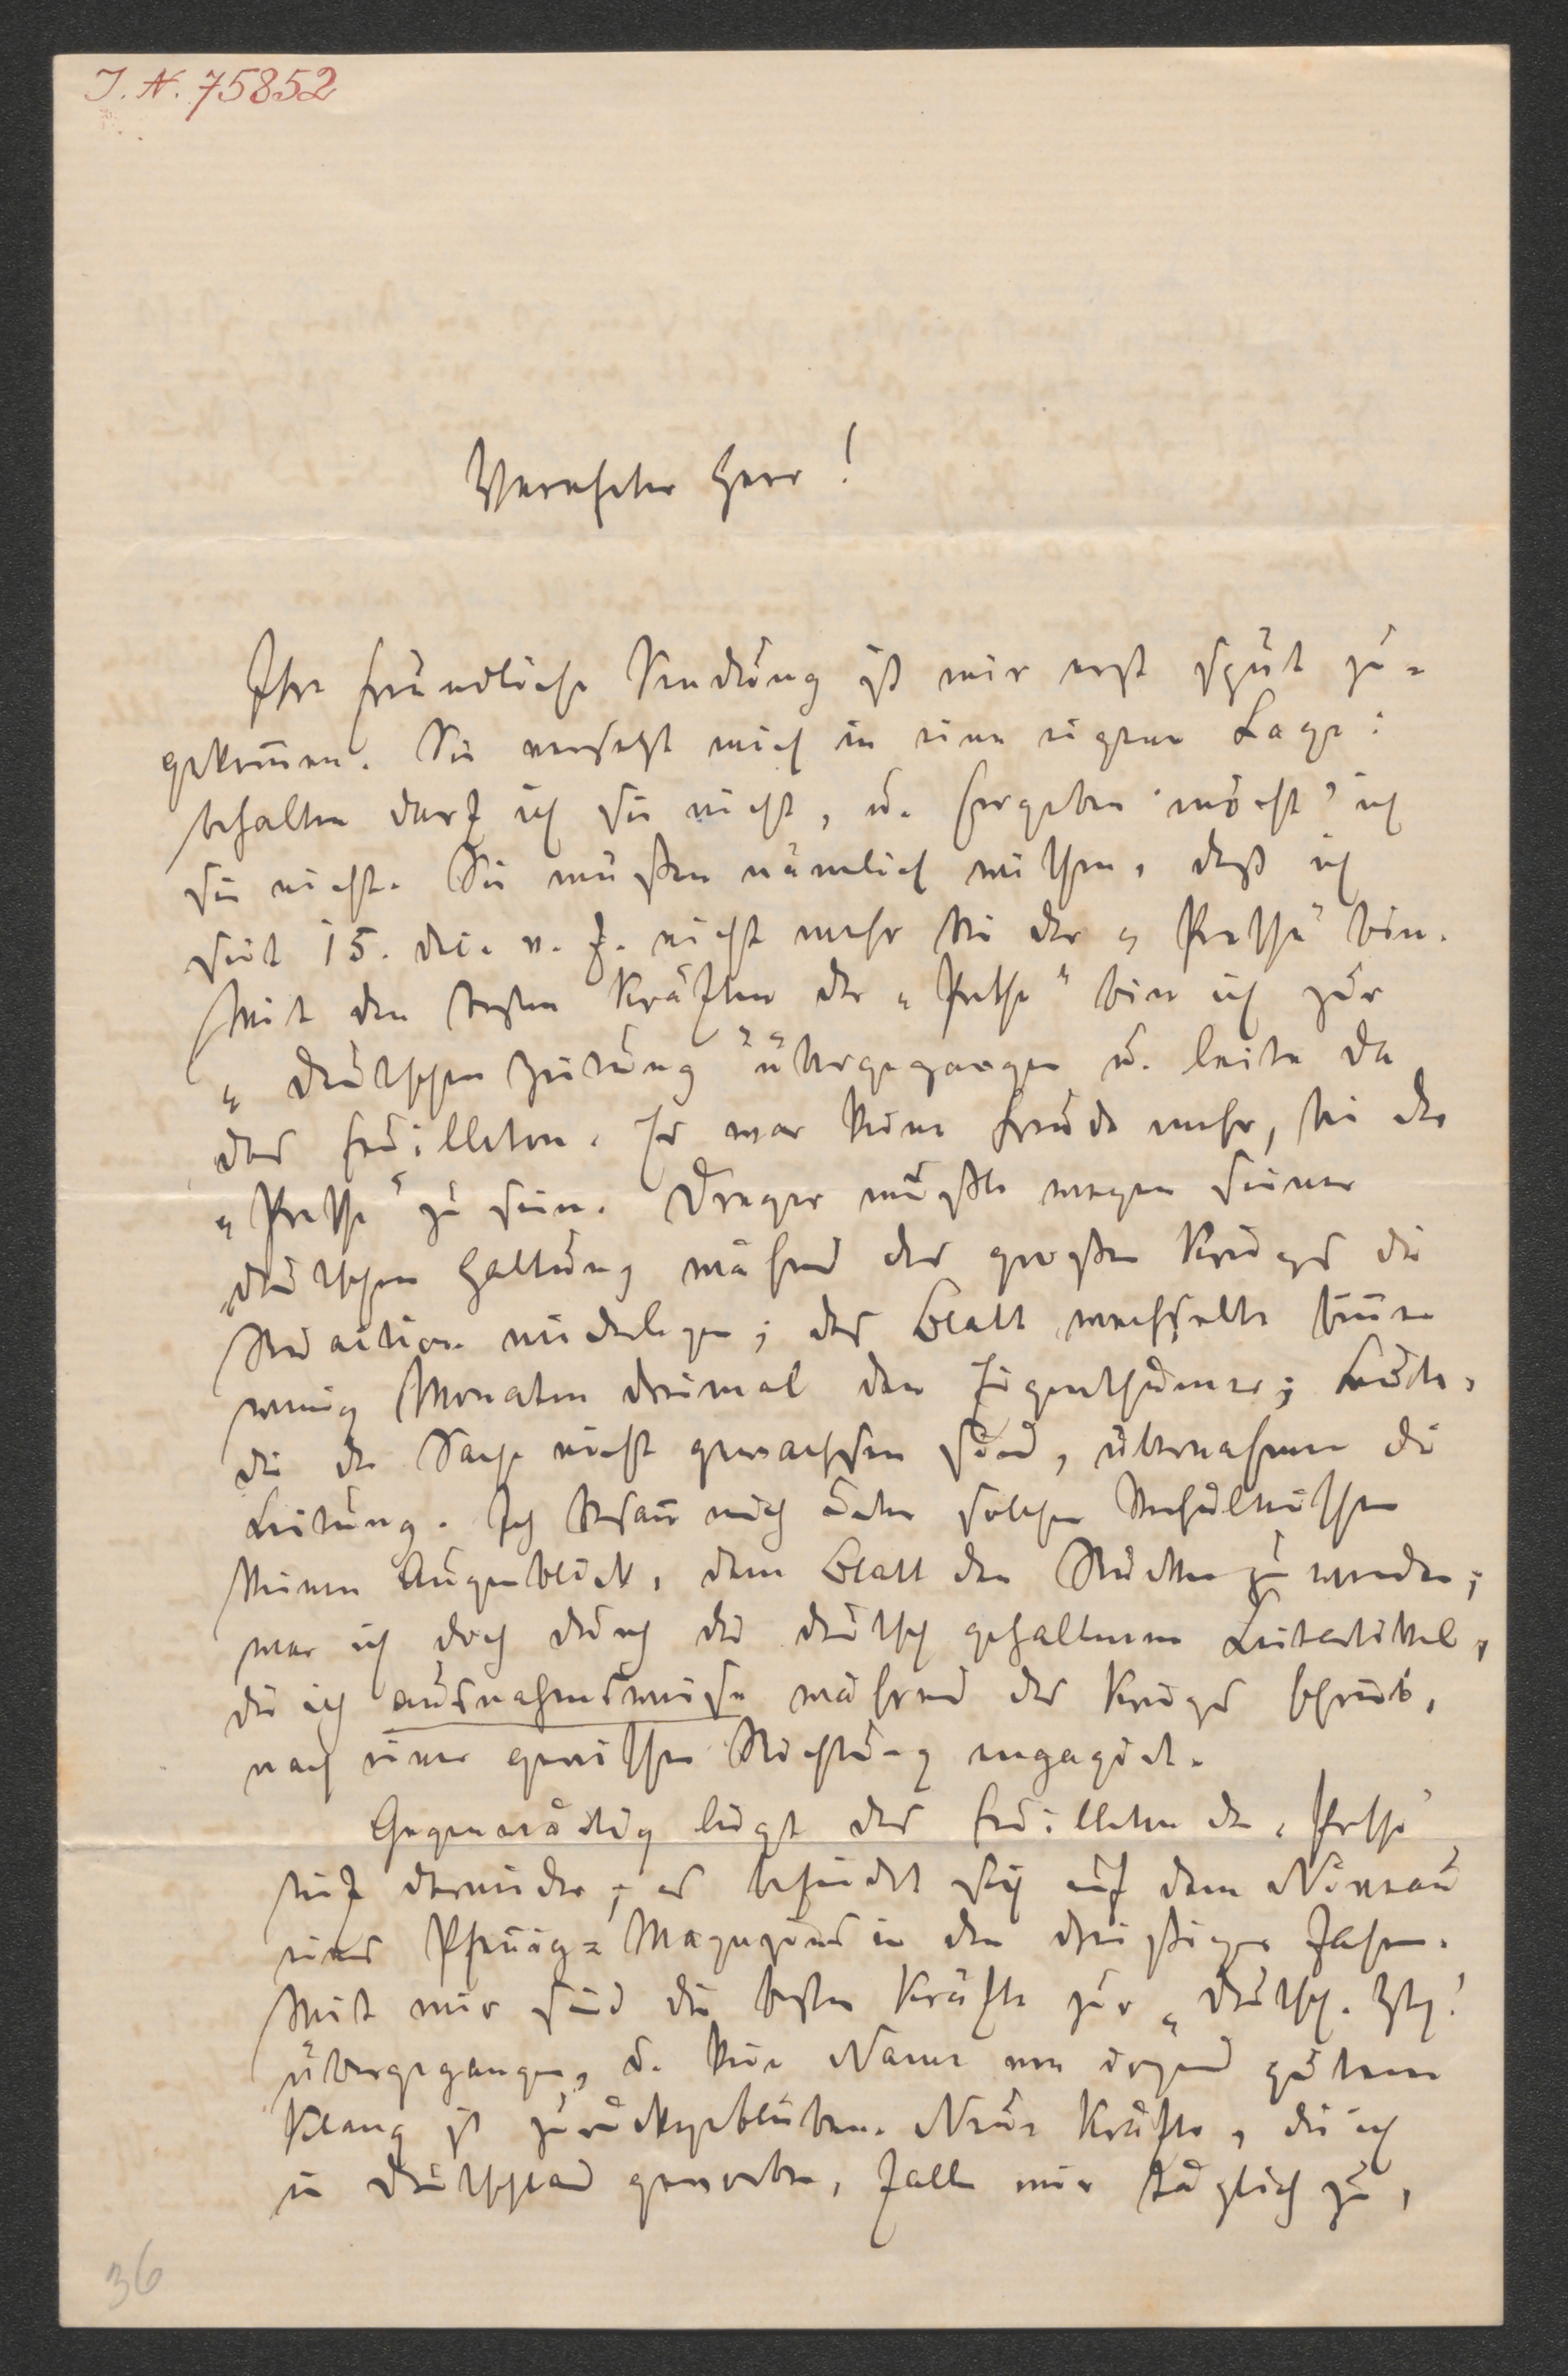 J. N. 75852
Verehrter Herr!
Ihre freundliche Sendung ist mir erst spät zu-
gekom̄en. Sie versetzt mich in eine eigene Lage:
behalten darf ich sie nicht, u. hergeben möcht' ich
sie nicht. Sie müßen nämlich wissen, daß ich
seit 15. Dec. v. J. nicht mehr bei der „Presse" bin.
Mit den besten Kräften der „Presse" bin ich zur
„Deutschen Zeitung" übergegangen u. leite da
das Feuilleton. Es war keine Freude mehr, bei der
„Presse" zu sein. Dreger mußte wegen seiner
deutschen Haltung während des großen Krieges die
Redaction niederlegen; das Blatt wechselte binnen
wenig Monaten dreimal den Eigenthümer; Leute,
die der Sache nicht gewachsen sind, übernahmen die
Leitung. Ich besan̄ mich unter solchen Verhältnissen
keinen Augenblick, dem Blatt den Rücken zu wenden;
war ich doch durch die deutsch gehaltenen Leitartikel,
die ich ausnahmsweise während des Krieges schrieb,
nach einer gewissen Richtung engagirt.
Gegenwärtig liegt das Feuilleton der „Presse"
tief darnieder; es befindet sich auf dem Niveau
eines Pfenig-Magazins in den dreißiger Jahren.
Mit mir sind die besten Kräfte zur „Deutsch. Ztg."
übergegangen, u. kein Name von irgend gutem
Klang ist zurückgeblieben. Neue Kräfte, die ich
in Deutschland geworben, fallen mir täglich zu,
36